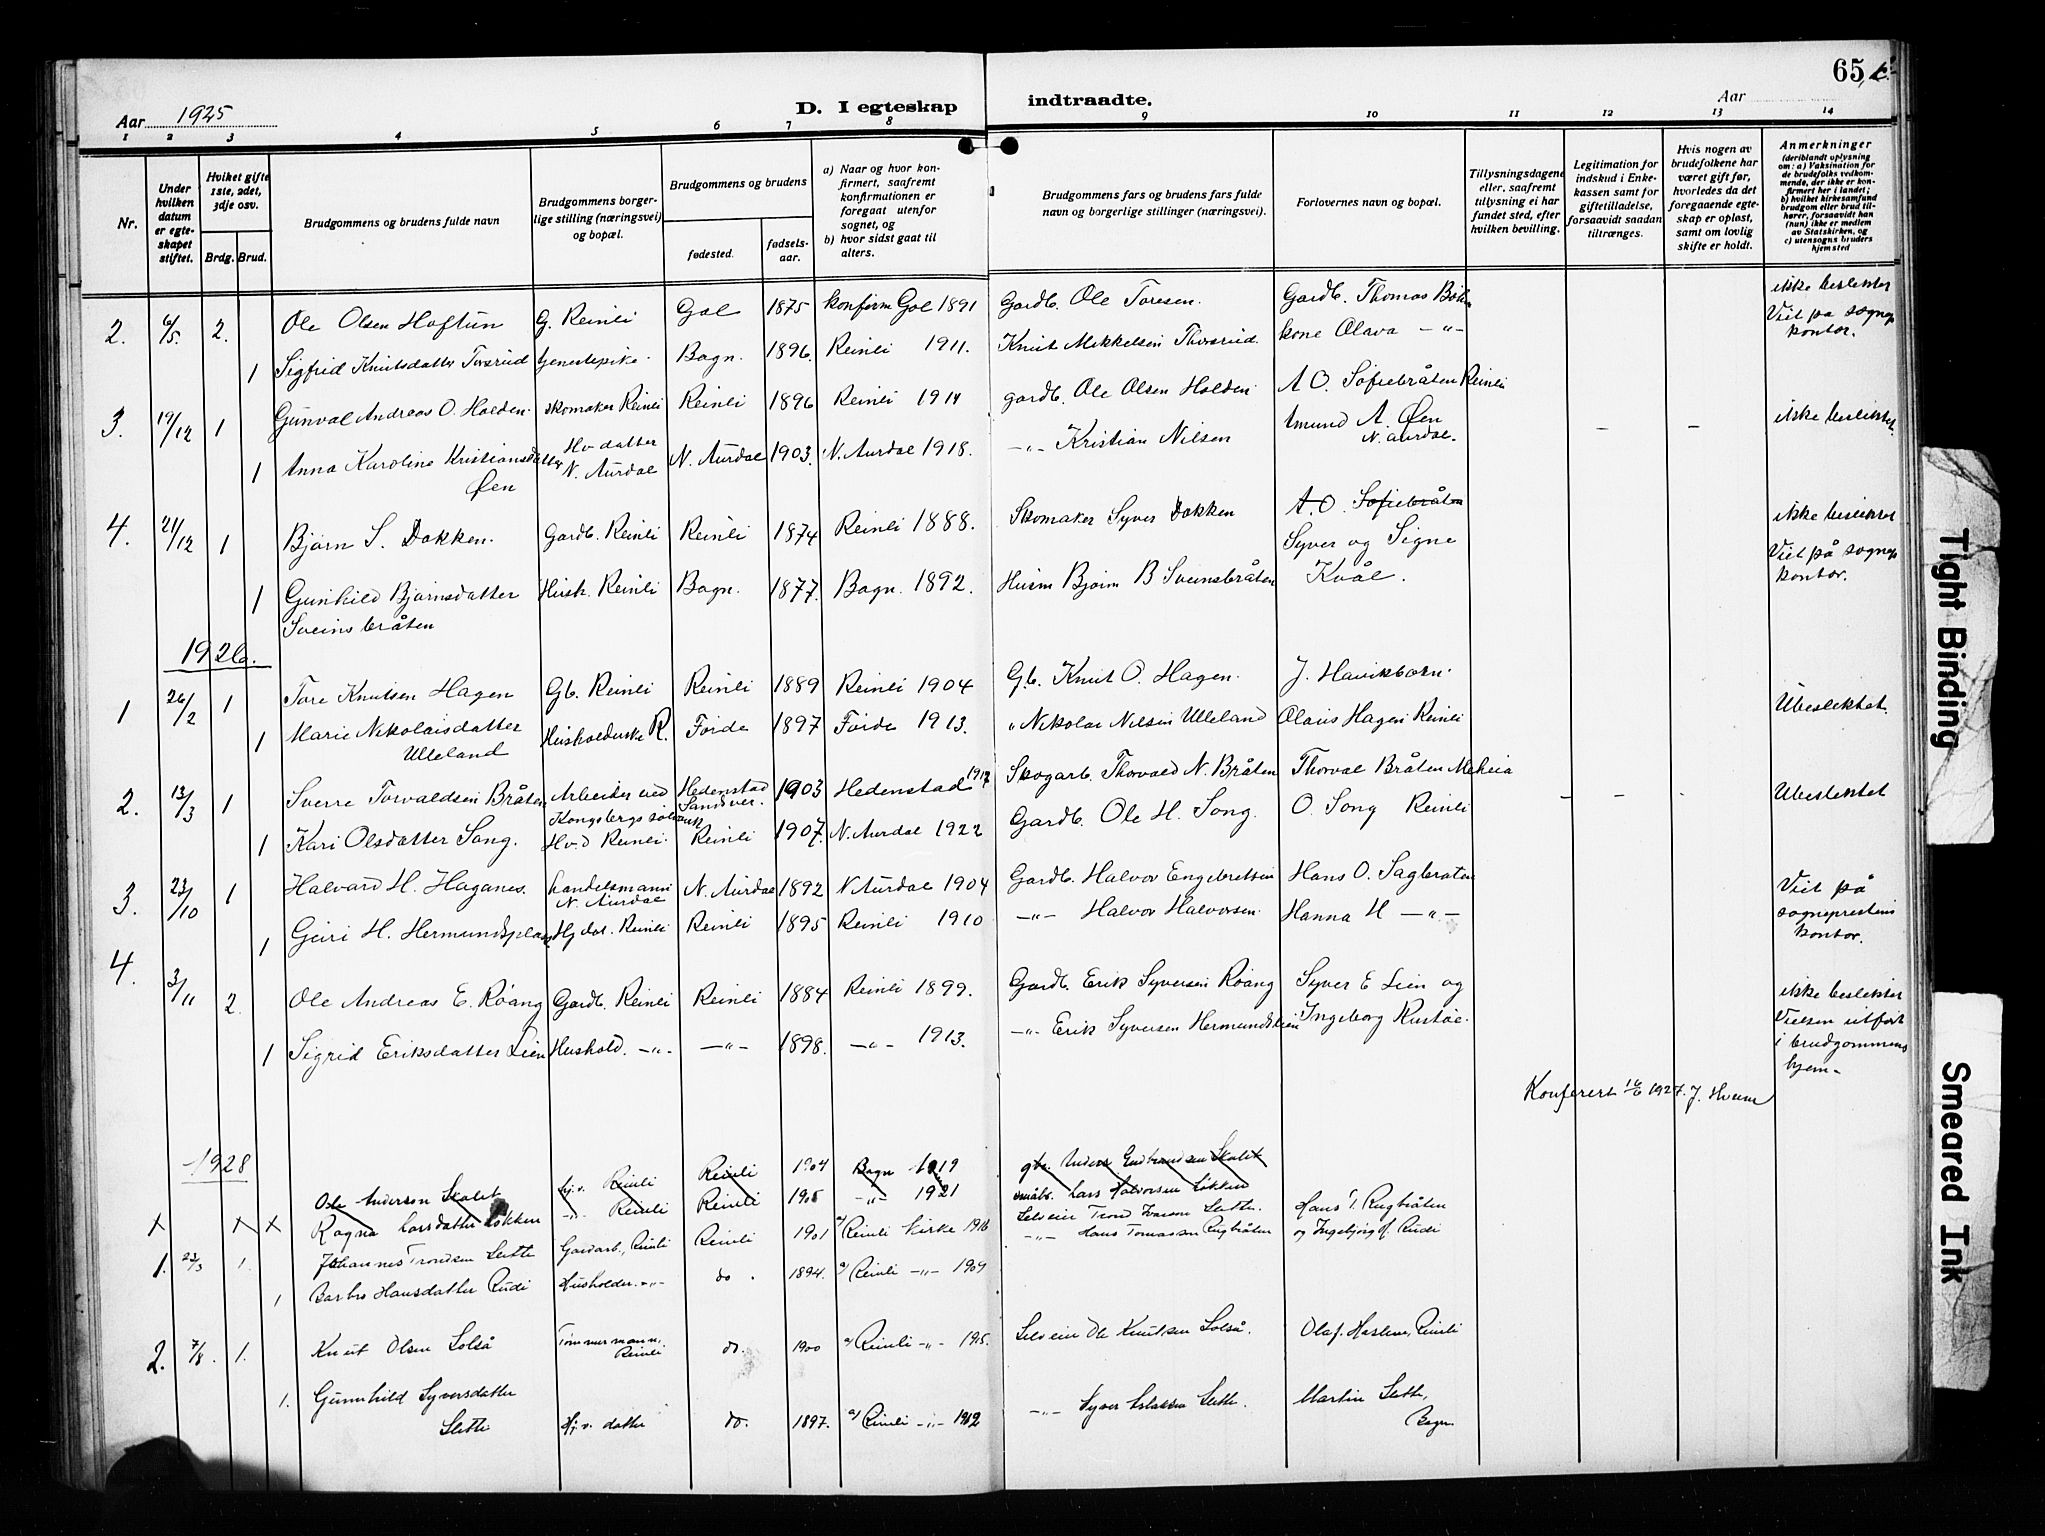 65
Aar 1925
D. I egteskap indtraadte.
Aar
1 2 3 4 5 6 7 8 9 10 11 12 13 14
Nr.
Under hvilken datum er egteskapet stiftet.
Hvilket gifte 1ste, 2det, 3dje osv.
Brdg. Brud.
Brudgommens og brudens fulde navn
Brudgommens borgerlige stilling (næringsvei) og bopæl.
Brudgommens og brudens
fødested.
fødselsaar.
a) Naar og hvor konfirmert, saafremt konfirmationen er foregaat utenfor sognet, og
b) hvor sidst gaat til alters.
Brudgommens fars og brudens fars fulde navn og borgerlige stillinger (næringsvei).
Forlovernes navn og bopæl.
Tillysningsdagene eller, saafremt tillysning ei har fundet sted, efter hvilken bevilling.
Legitimation for indskud i Enkekassen samt for giftetilladelse, forsaavidt saadan tiltrænges.
Hvis nogen av brudefolkene har været gift før, hvorledes da det foregaaende egteskap er opløst, samt om lovlig skifte er holdt.
Anmerkninger
(deriblandt oplysning om: a) Vaksination for de brudefolks vedkommende, der ikke er konfirmert her i landet; b) hvilket kirkesamfund brudgom eller brud tilhører, forsaavidt han (hun) ikke er medlem av Statskirken, og c) utensogns bruders hjemsted
2. 6/5. 2. Ole Olsen Haftun G. Reinli Gol 1875 konfirm Gol 1891 Gardb. Ole Toresen. Gardb. Thomas ikke beslektet
1 Sigfrid Knutsdatter Torsrud Bagn. 1896. Reinli 1911. Knut Mikkelsen Thorsrud. kone Olava -"- Viet på sognep kontor.
3. 19/12 1 Gunval Andreas O. Halden. skomaker Reinli Reinli 1896 Reinli 1914 gardb. Ole Olsen Halden. A O. Sofiebråten Reinli - - ikke beslektet.
1 Anna Karoline Kristiansdatter Øen Hv datter N. Aurdal N. Aurdal 1903. N. Aurdal 1918. -"- Kristian Nilsen Amund A. Øen N. Aurdal.
4. 21/12 1 Bjørn S. Dokken. Gardb. Reinli Reinli 1874 Reinli 1888. Skomaker Syver Dokken A.O. Sofiebråten ikke beslektet
Syver og Signe Viet på sogneps kontor.
1 Gunhild Bjørnsdatter Sveinsbråten Hush. Reinli Bagn. 1877. Bagn. 1892. Husm Bjørn B Sveinsbråten Kvål.
1926.
1 26/2 1 Tore Knutsen Hagen Gb. Reinli Reinli 1889 Reinli 1904 Gb. Knut O. Hagen. J. Havikbotn. Ubeslektet.
1 Marie Nikolaisdatter Ulleland Husholderske R. Førde 1897 Førde 1913. " Nikolai Nilsen Ulleland Olaus Hagen Reinli
2. 13/3 1 Sverre Torvaldsen Bråten Arbeider ved Kongsberg sølvverk Hedenstad Sandsver. 1903 Hedenstad 1917 Skogarb. Thorvald N. Bråten Thorval Bråten Meheia - - Ubeslektet
1 Kari Olsdatter Song. Hv.d Reinli. Reinli 1907. N. Aurdal 1922 Gardb. Ole H. Song. O. Song Reinli
3. 23/10 1 Halvard H. Haganes. handelsmann N. Aurdal N. Aurdal 1892 N Aurdal 1904 Gardb. Halvor Engebretsen Hans O. Sagbraten Viet på sogneprestens kontor.
1 Guri H. Hermundsplass Hj dat. Reinli Reinli 1895 Reinli 1910 -"- Halvor Halvorsen. Hanna H -"-
4. 3/11 2. Ole Andreas E. Røang Gardb. Reinli Reinli 1884 Reinli 1899. Gardb. Erik Syversen Røang Syver E Lien og ikke beslektet
1 Sigrid Eriksdatter Lien Hushold. -"- -"- 1898. -"- 1913. -"- Erik Syversen Hermundslien Ingeborg Rustøe. Vielsen utført i brudgommens hjem.
Konferert 16/6 1927. J. Hveem
1928
Ole Anderson Skalet hj.v. Reinli Reinli 1904 Bagn 1919 gbr. Anders Gudbrandsen Skalet
x x x Ragna Larsdatter Løkken -"- Reinli Reinli 1905 -"- 1921 småbr. Lars Halvorsen Løkken
1. 23/3 1. Johannes Trondsen Sletti Gardarb., Reinli Reinli 1901 a) Reinli kirke 1916 Selveier Trond Iversen Sletti. Hans T. Rugbråten
1 Barbro Hansdatter Rudi Husholder. -"- do. 1894. a) Reinli -"- 1909 -"- Hans Tomassen Rugbråten og Ingebjørg Rudi
2. 7/8. 1. Knut Olsen Solså Tømmermann, Reinli do. 1900 a) Reinli -"- 1915. Selveier Ole Knutsen Solså. Olaf. Haslem, Reinli
1. Gunnhild Syversdatter Sletti Hj.v. datter do. 1897. a) Reinli -"- 1912 -"- Syver Sletti. Martin Sletti, Bagn.
Tight Binding
Smeared Ink